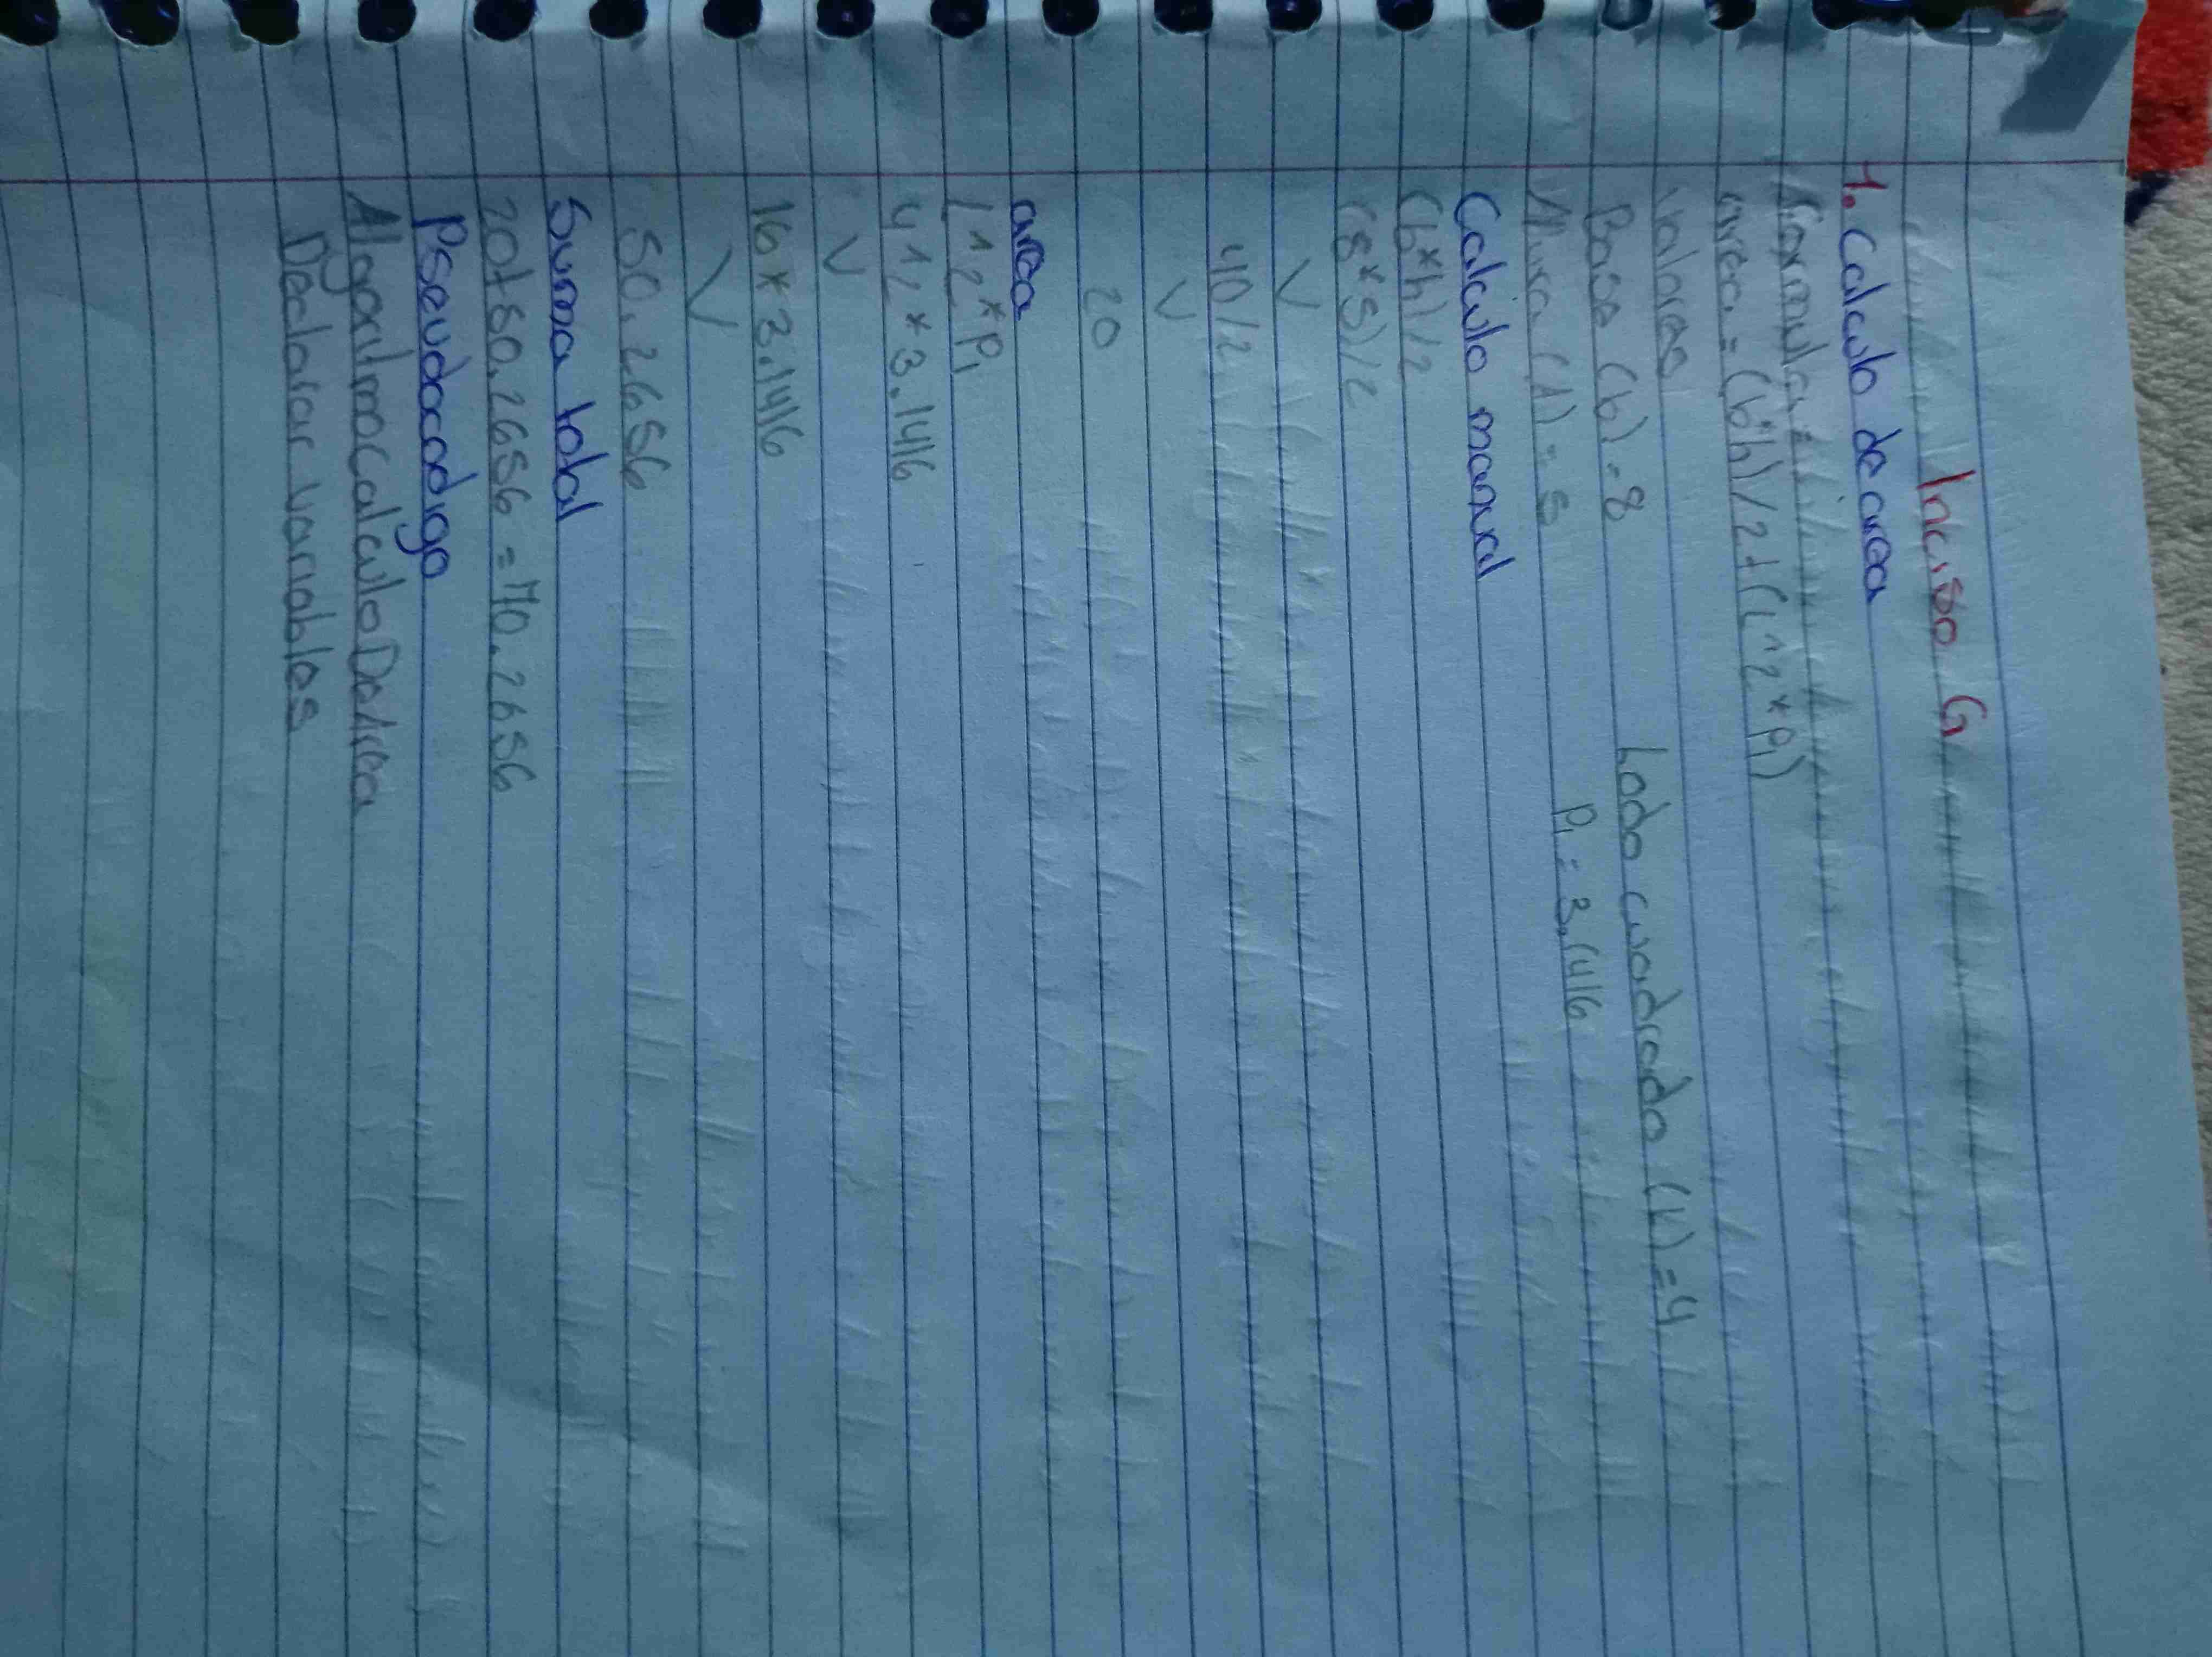 Inciso G
1. Calculo de area
Formula:
area = (b*h)/2+(l^2*Pi)
valores
Base (b) = 8 Lado cuadrado (L) = 4
Altura (h) = 5 Pi = 3.1416
Calculo manual
(b*h)/2
(8*5)/2
40/2
20
area
L^2*Pi
4^2*3.1416
16*3.1416
50.2656
Suma total
20+50.2656 = 70.2656
Pseudocodigo
AlgoritmoCalculoDeArea
Declarar variables